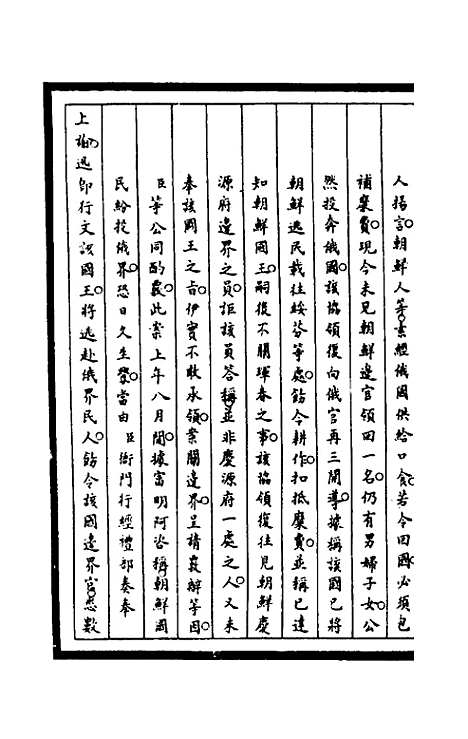 人揚言朝鮮人等業經俄國供給口食若令回國必須包
補糜費現今未見朝鮮邊官領回一名仍有男婦子女公
然投奔俄國該協領復向俄官再三開導據稱該國已將
朝鮮逃民載往綏芬等處飭令耕作扣抵糜費並稱已達
知朝鮮國王嗣復不關琿春之事該協領復往見朝鮮慶
源府邊界之員詎該員答稱並非慶源府一處之人又未
奉該國王之旨伊實不敢承領案關邊界呈請裏辦等因
臣等公同酌覈此案上年八月間據富明阿咨稱朝鮮國
民紛投俄界恐日久生釁當由臣衙門行經禮部奏奉
上諭迅即行文該國王將逃赴俄界民人飭令該國邊界官悉數